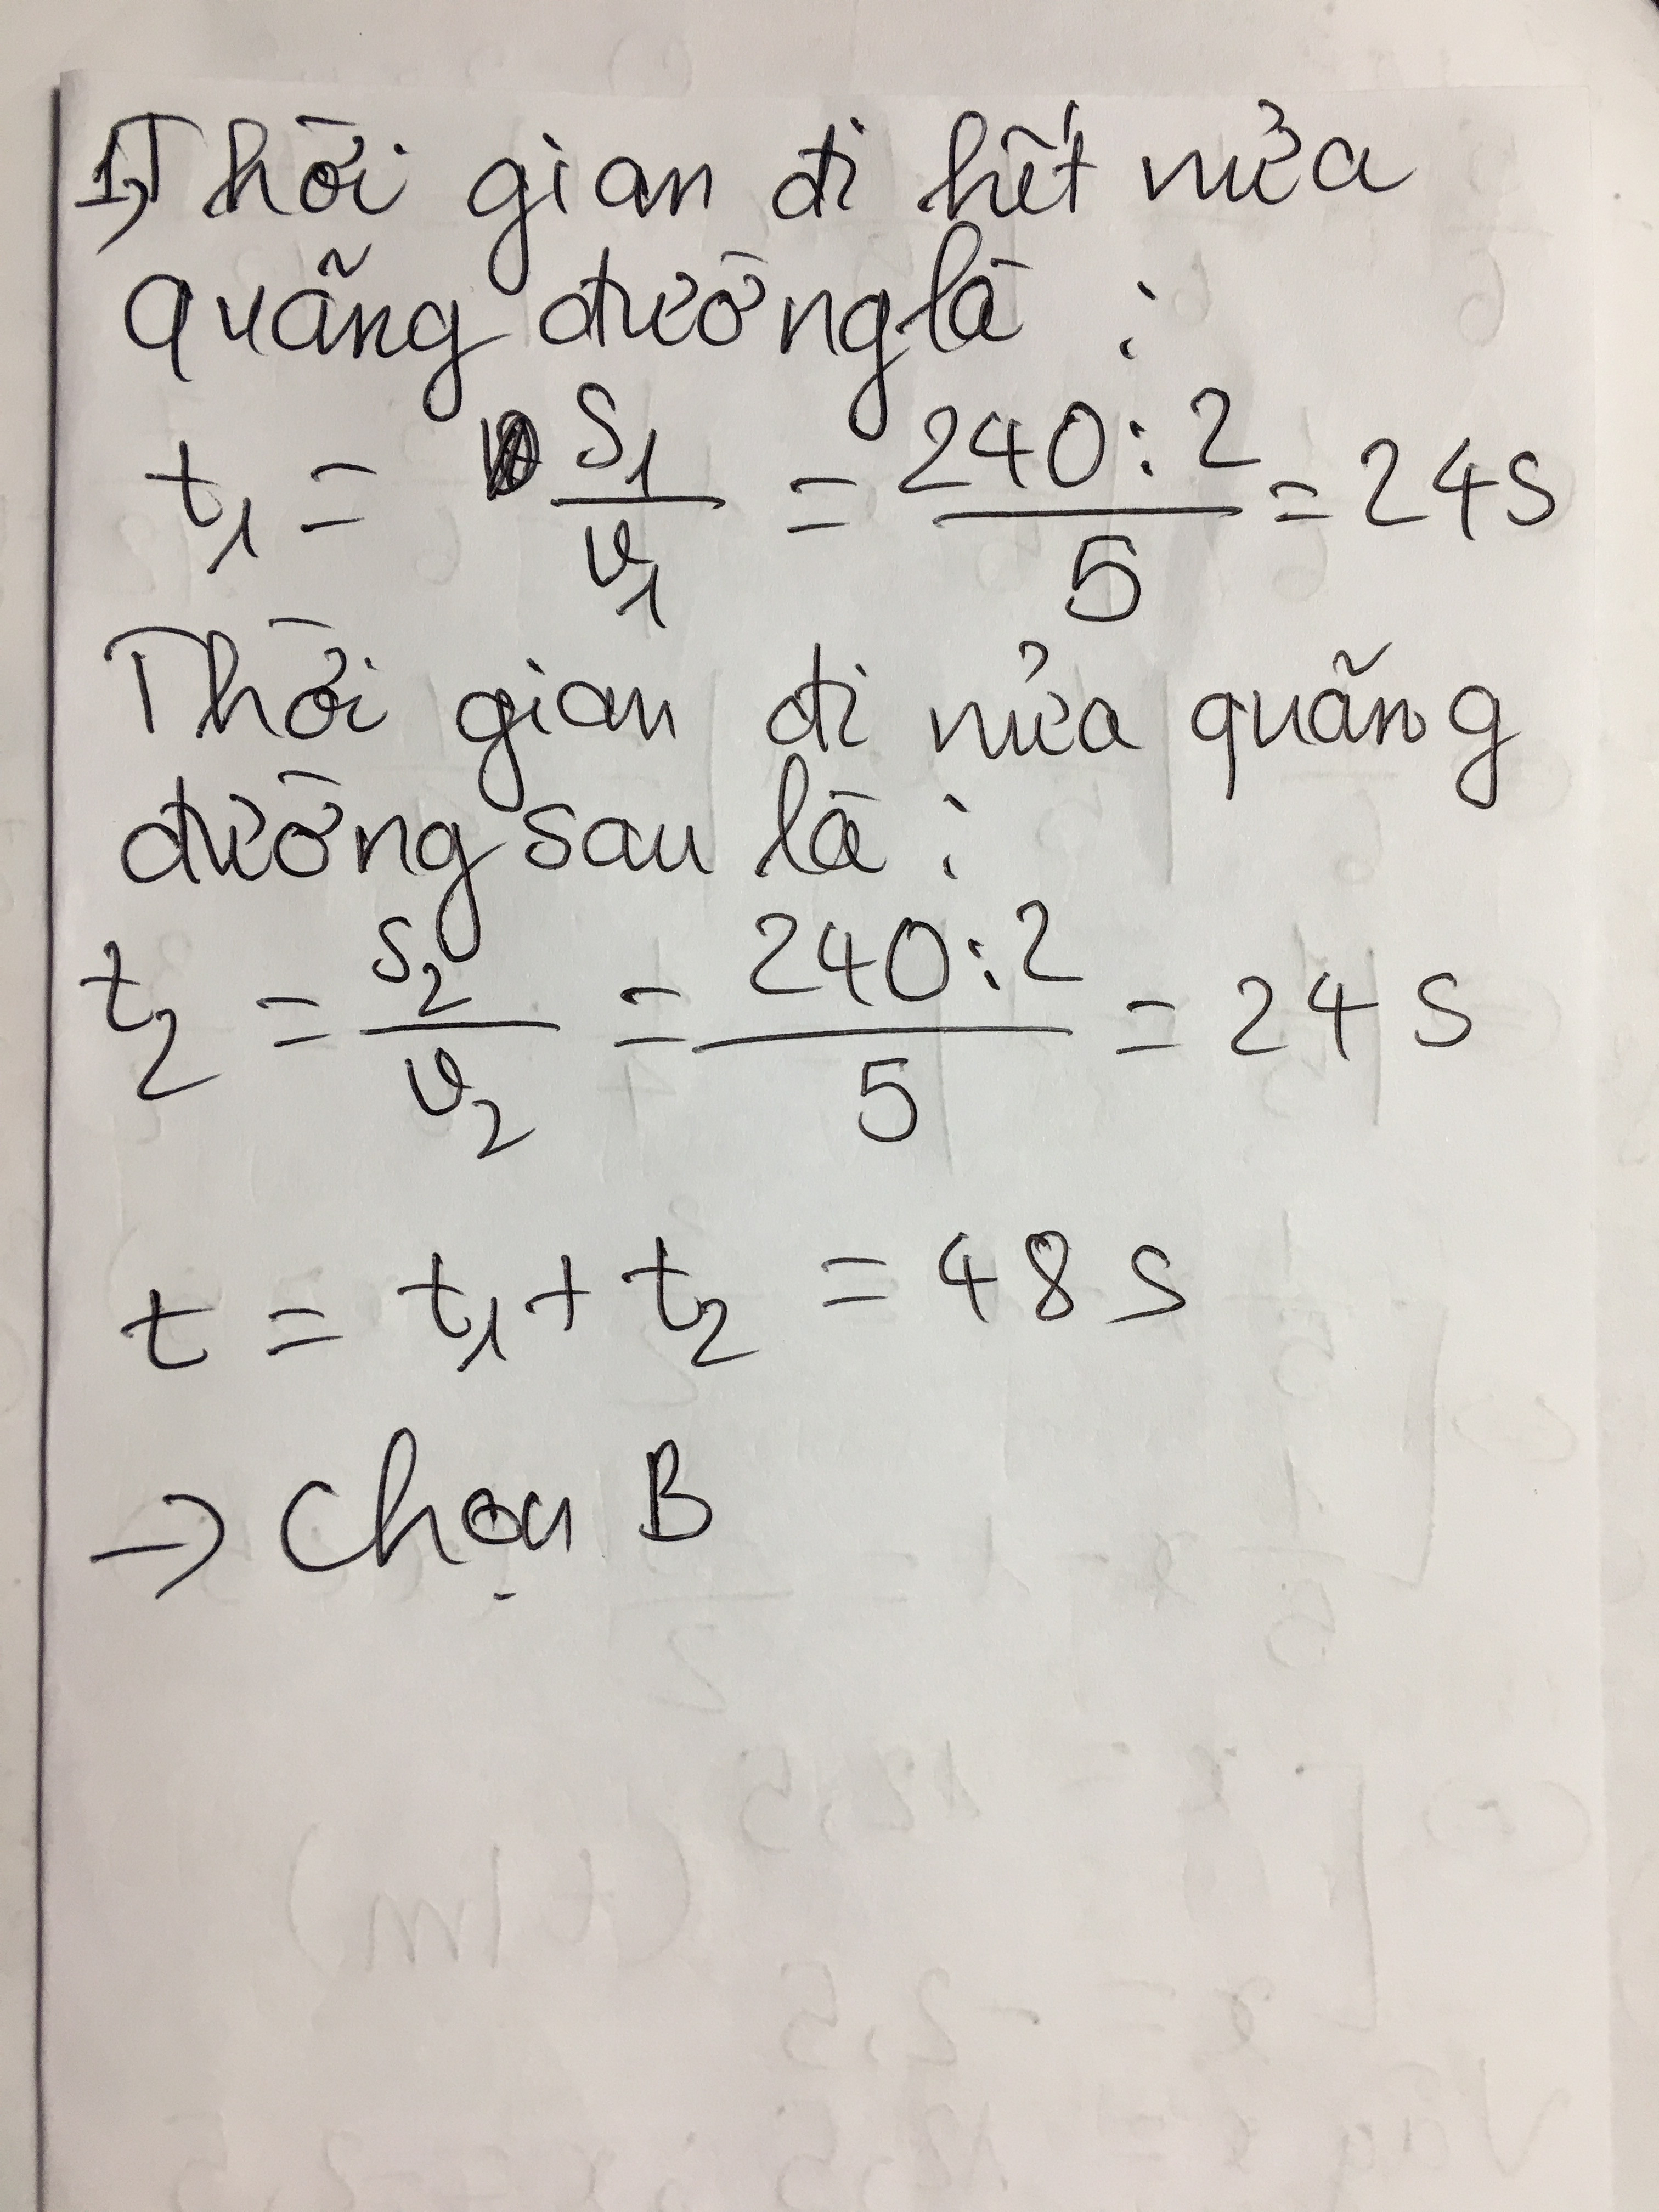 1, Thời gian đi hết nửa
quãng đường là :
t₁ = S₁/v₁ = 240:2/5 = 24s
Thời gian đi nửa quãng
đường sau là :
t₂ = S₂/v₂ = 240:2/5 = 24 s
t = t₁ + t₂ = 48 s
→ Chọn B